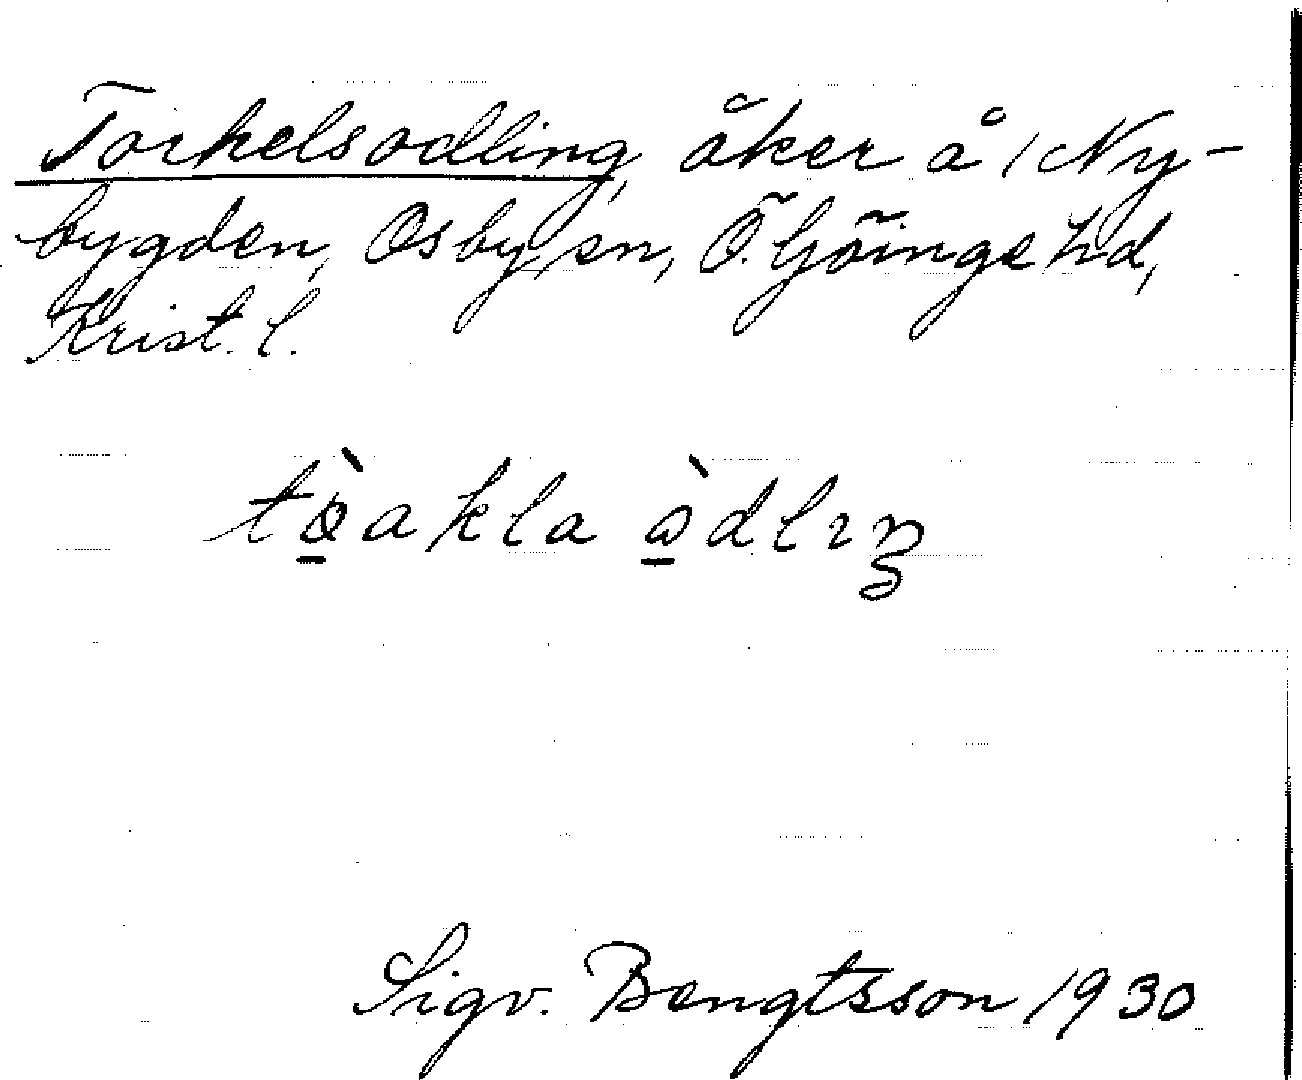 Torkelsodling, åker å /Ny-
bygden, Osby sn, Ö. Göinge hd,
Krist. l.
tø̠̀akla ò̠dlıŋ
Sigv. Bengtsson 1930